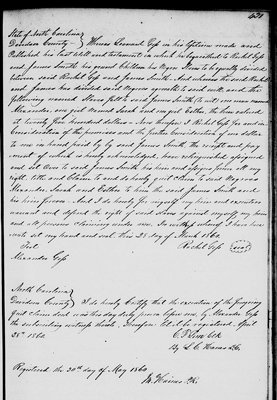 State of North Carolina
Davidson County
in his lifetime made and
Published his last Will and testament in which he bequeathed to Rachel Goss
and James Smith his grand Children his Negro Slaves to be equally divided
between said Rachel Goss and James Smith. And whereas the said Rachel
and James has divided said Negroes agreeable to said will and the
following named Slaves fell to said James Smith to wit: one man named
Alexander one girl named Sarah and one Esther, the three valued
at twenty four hundred dollars. Now therefore I Rachel Goss for and in
Consideration of the premises and the further Consideration of one dollar
to me in hand paid by said James Smith the receipt and pay
ment of which is hereby acknowledged, have relinquished assigned
and set over to said James Smith his heirs and assigns forever all my
right title and Claim to and do hereby quit claim to said Negroes
Alexander Sarah and Esther to him the said James Smith and
his heirs forever. And I do hereby for myself my heirs and executors
warrant and defend the right of said Slaves against myself my heirs
and all persons claiming under me. In witness whereof I have here
unto set my hand and seal. This 23d day of March 1860.
Test Rachel Goss (seal)
Alexander Goss
North Carolina
Davidson County I do hereby Certify that the execution of the foregoing
Quit Claim deed was this day duly proven before me by Alexander Goss
the subscribing witness thereto. Therefore let it be registered. April
28th 1860.
Clk
By L. C. Hanes D.C.
Registered the 30th day of May 1860